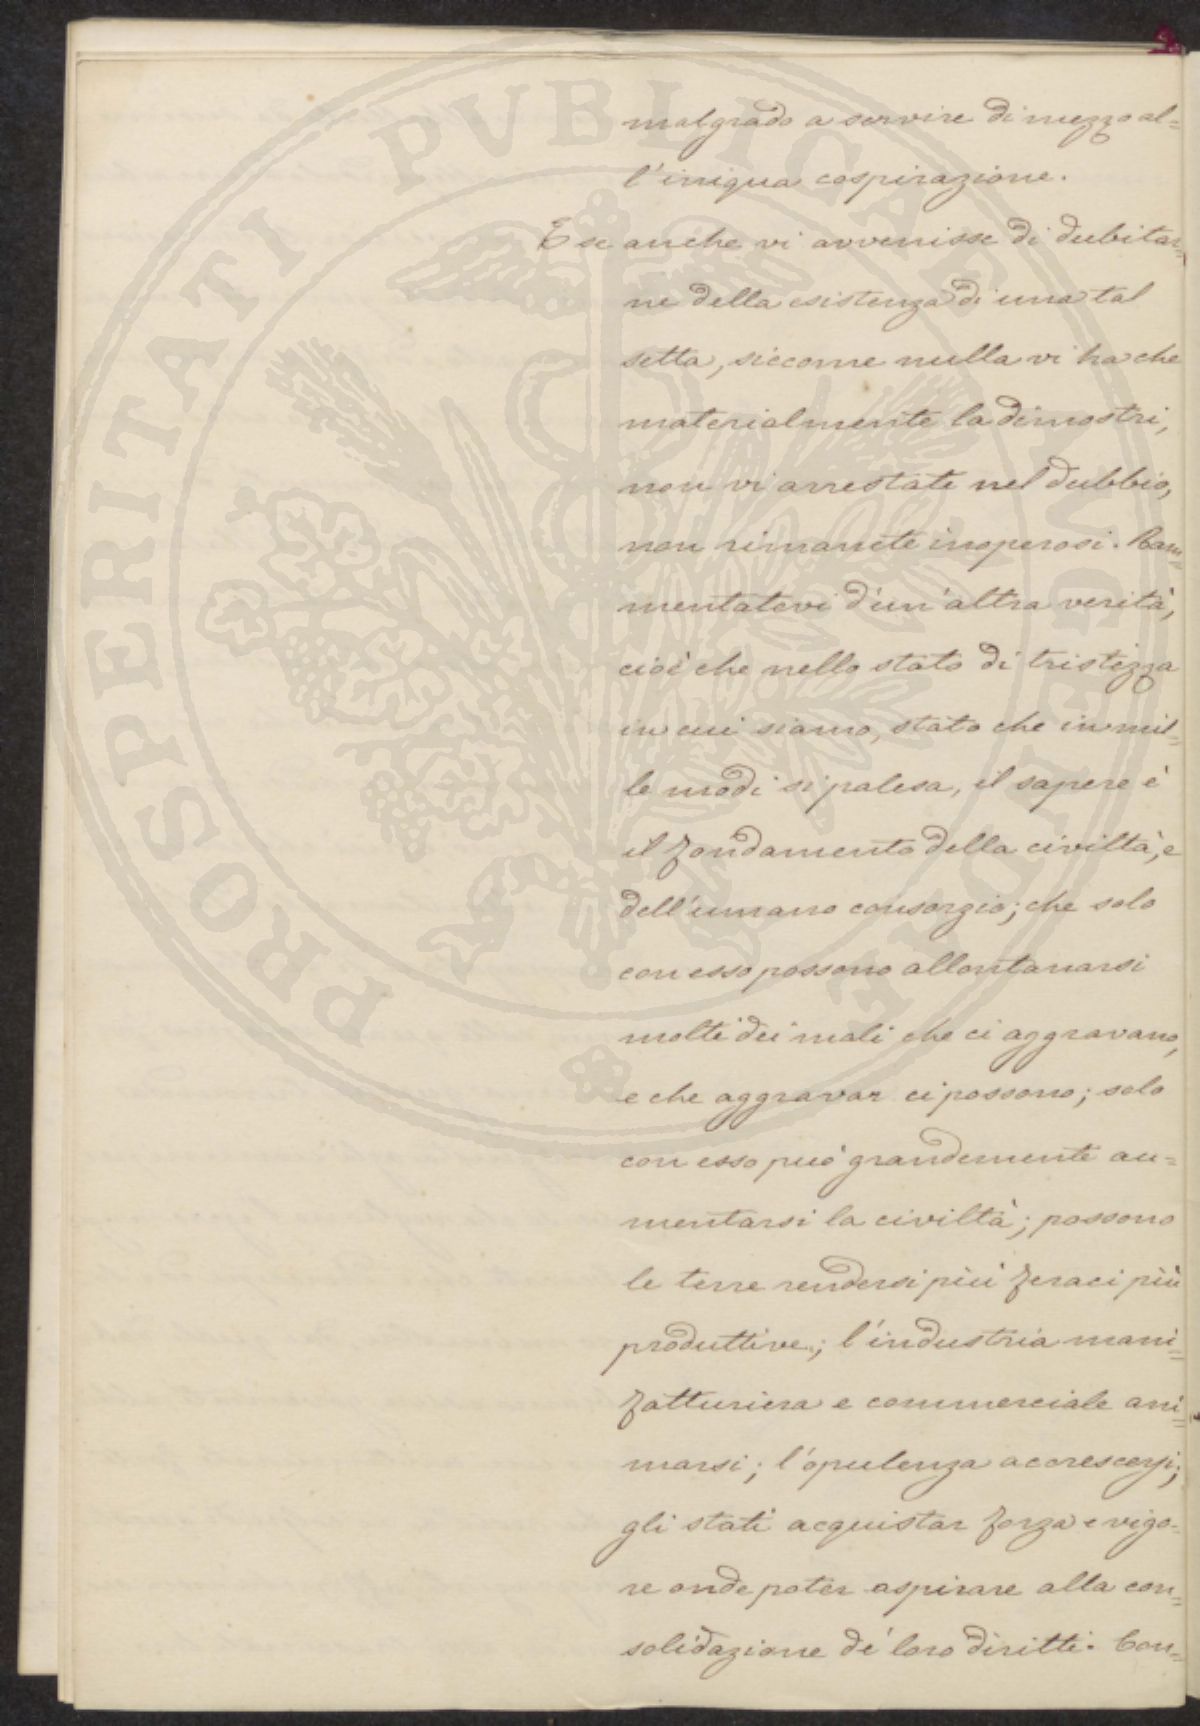 malgrado a servire di mezzo al=
l'iniqua cospirazione.
E se anche vi avvenisse di dubitar=
ne della esistenza di una tal
setta, siccome nulla vi ha che
materialmente la dimostri,
non vi arrestate nel dubbio,
non rimanete inoperosi. Ram=
mentatevi d'un'altra verità,
cioè che nello stato di tristezza
in cui siamo, stato che in mil=
le modi si palesa, il sapere è
il fondamento della civiltà, e
dell'umano consorzio; che solo
con esso possono allontanarsi
molti dei mali che ci aggravano,
e che aggravar ci possono; solo
con esso può grandemente au=
mentarsi la civiltà; possono
le terre rendersi più feraci più
produttive; l'industria mani=
fatturiera e commerciale ani=
marsi; l'opulenza accrescersi;
gli stati acquistar forza e vigo=
re onde poter aspirare alla con=
solidazione de' loro diritti. Con=
PROSPERITATI PVBLICAE AVGENDAE